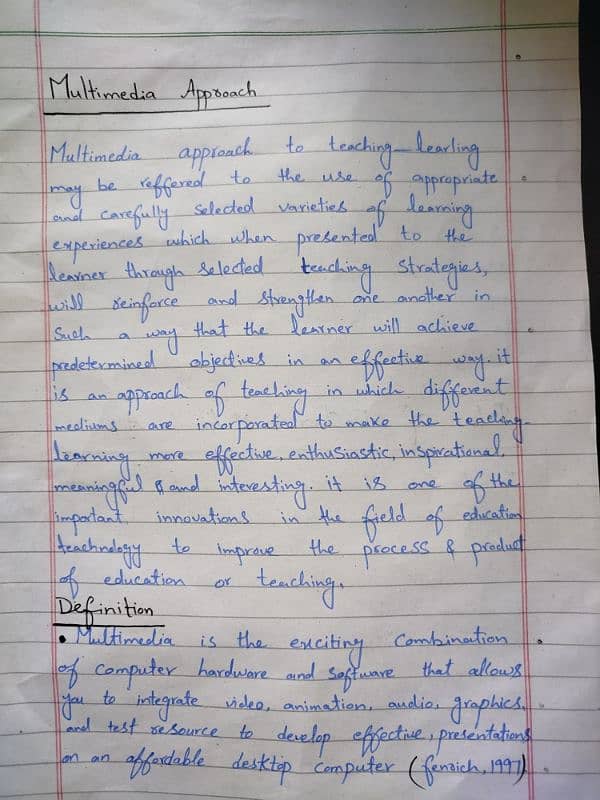 Multimedia Approach
Multimedia approach to teaching-learling
may be reffered to the use of appropriate
and carefully selected varieties of learning
experiences which when presented to the
learner through selected teaching strategies,
will reinforce and strengthen one another in
such a way that the learner will achieve
predetermined objectives in an effective way. it
is an approach of teaching in which different
mediums are incorporated to make the teaching-
learning more effective, enthusiastic, inspirational,
meaningful & and interesting. it is one of the
important innovations in the field of education
teachnology to improve the process & product
of education or teaching.
Definition
• Multimedia is the exciting combination
of computer hardware and software that allows
you to integrate video, animation, audio, graphics,
and test resource to develop effective, presentations
on an affordable desktop computer (fenrich, 1997)